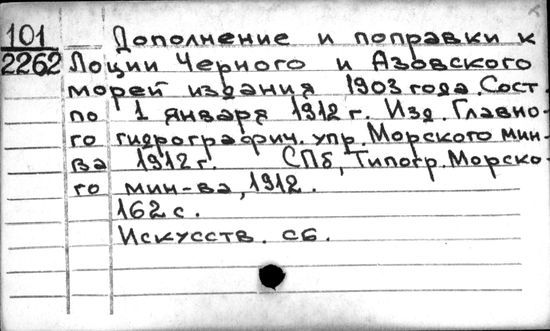 101 Дополнение и поправки к
2262 Лоции Черного и Азовского
морей издания 1903 года. Сост.
по 1 января 1912 г. Изд. Главно-
го гидрографич. упр. Морского мин-
ва 1912 г. СПб, Типогр. Морско-
го мин-ва, 1912.
162 с.
Искусств. сб.